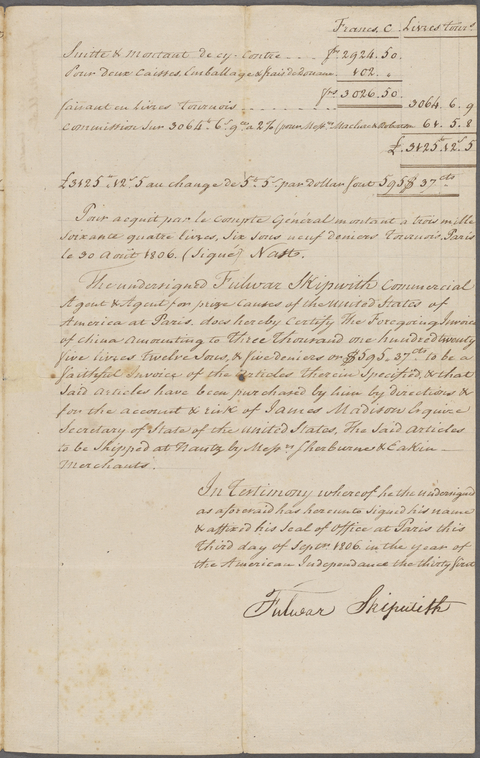 Francs, C. Livres tour.s
Suitte & montant de cy-contre ... frs 2924.50.
Pour deux Caisses, Emballage & frais de Douane 102. "
frs 3026.50
faisant en livres tournois ... 3064. 6. 9
Commission sur 3064.tt 6.s 9.d a 2% (pour Mess.rs Maclure & Robertson 61. 5. 8
£. 3125.tt 12.s 5
£ 3125.tt 12.s 5 au change de 5.tt 5.s par dollar font 595$ 37cts
Pour acquit par le Compte Général montant a trois mille
soixante quatre livres, six sous neuf deniers tournois. Paris
le 30 Août 1806. (Signé) Nast.
The undersigned Fulwar Skipwith Commercial
Agent & Agent for prize causes of the United States of
America at Paris, does hereby Certify The Foregoing Invoice
of China amounting to Three thousand one hundred twenty
five livres twelve sous, & five deniers or $595, 37cts to be a
faithful Invoice of the Articles therein Specified, & that
Said Articles have been purchased by him by directions &
for the account & risk of James Madison Esquire
Secretary of State of the United States, The Said Articles
to be Shipped at Nantz by Mess.rs Sherburne & Eakin
Merchants.
In Testimony whereof he the undersigned
as aforesaid has hereunto signd his name
& affixed his Seal of Office at Paris this
Third day of Septr. 1806. in the year of
the American Independance the thirty first
Fulwar Skipwith